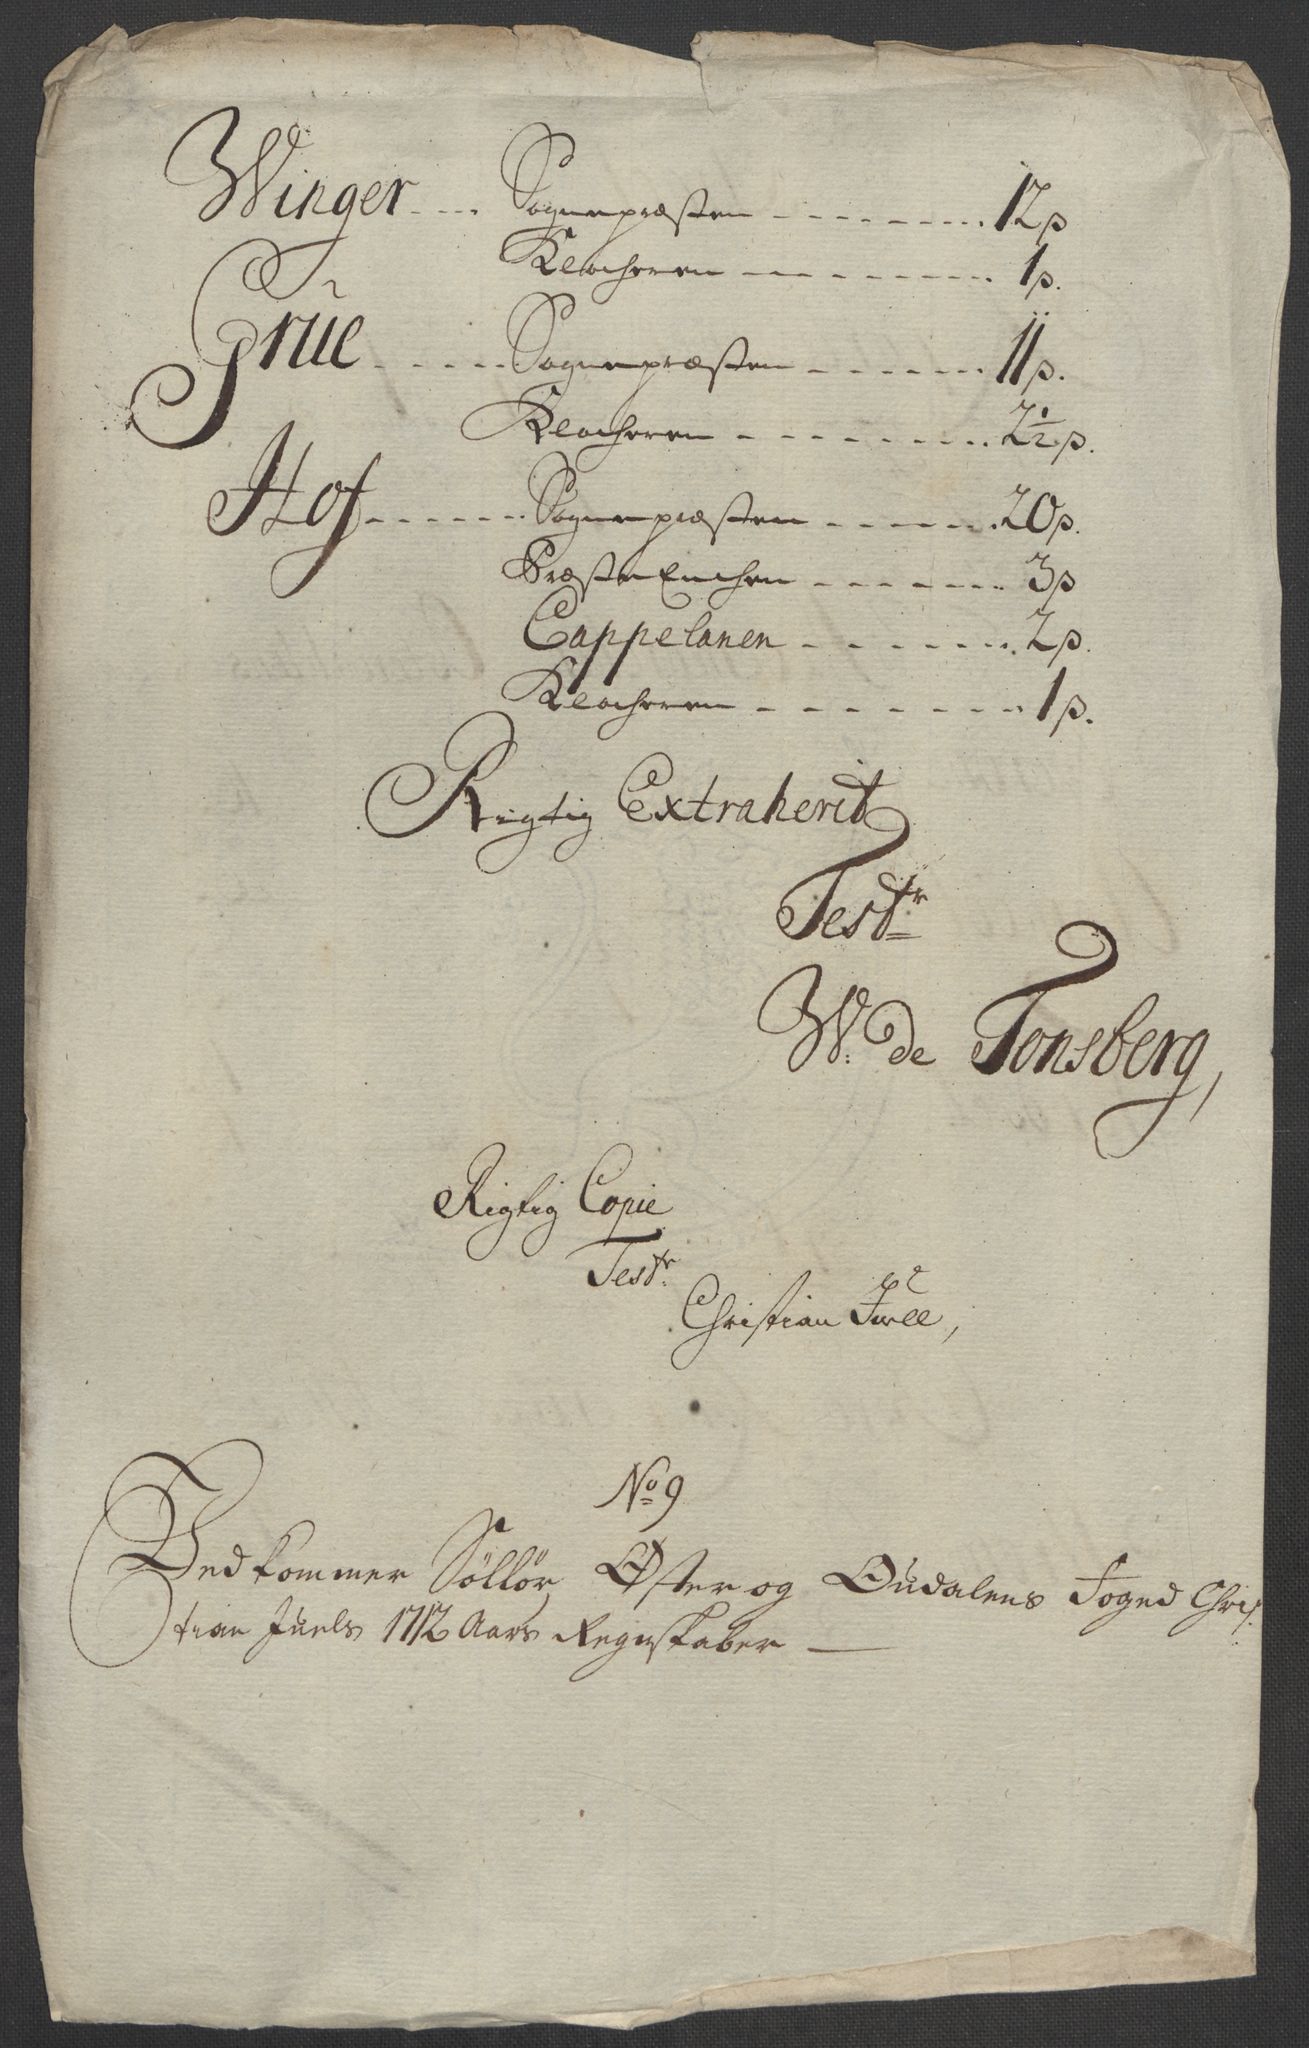 Winger .... Sognepræsten ........ 12 p
Klocheren ........ 1 p.
Grüe ..... Sognepræsten ...... 11 p.
Klocheren ........ 2½ p.
Hof ...... Sognepræsten ...... 20 p.
Præste Enchen ...... 3 p
Cappelanen ...... 2 p.
Klocheren ........ 1 p.
Rigtig Extraherit
Test:r
W: de Tonsberg,
Rigtig Copie
Test:r
Christian Juell,
No 9
Vedkommer Söllör Øster og Oudalens Foged Chris
tian Juels 1712 Aars Regnskaber —